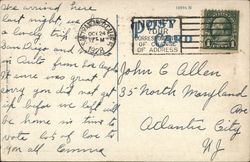 We arrived here
last night, we had
a lovely trip
San Diego and
in Auto from Los Angeles
sure was great
sorry you did not get
up before we left will
be home in time to
vote lots of love to
you all Emma
OCT 24
1928
POST
CARD
YOUR
CORRESPONDENTS
OF CHANGE
OF ADDRESS
John C Allen
35 North Maryland
Ave
Atlantic City
NJ